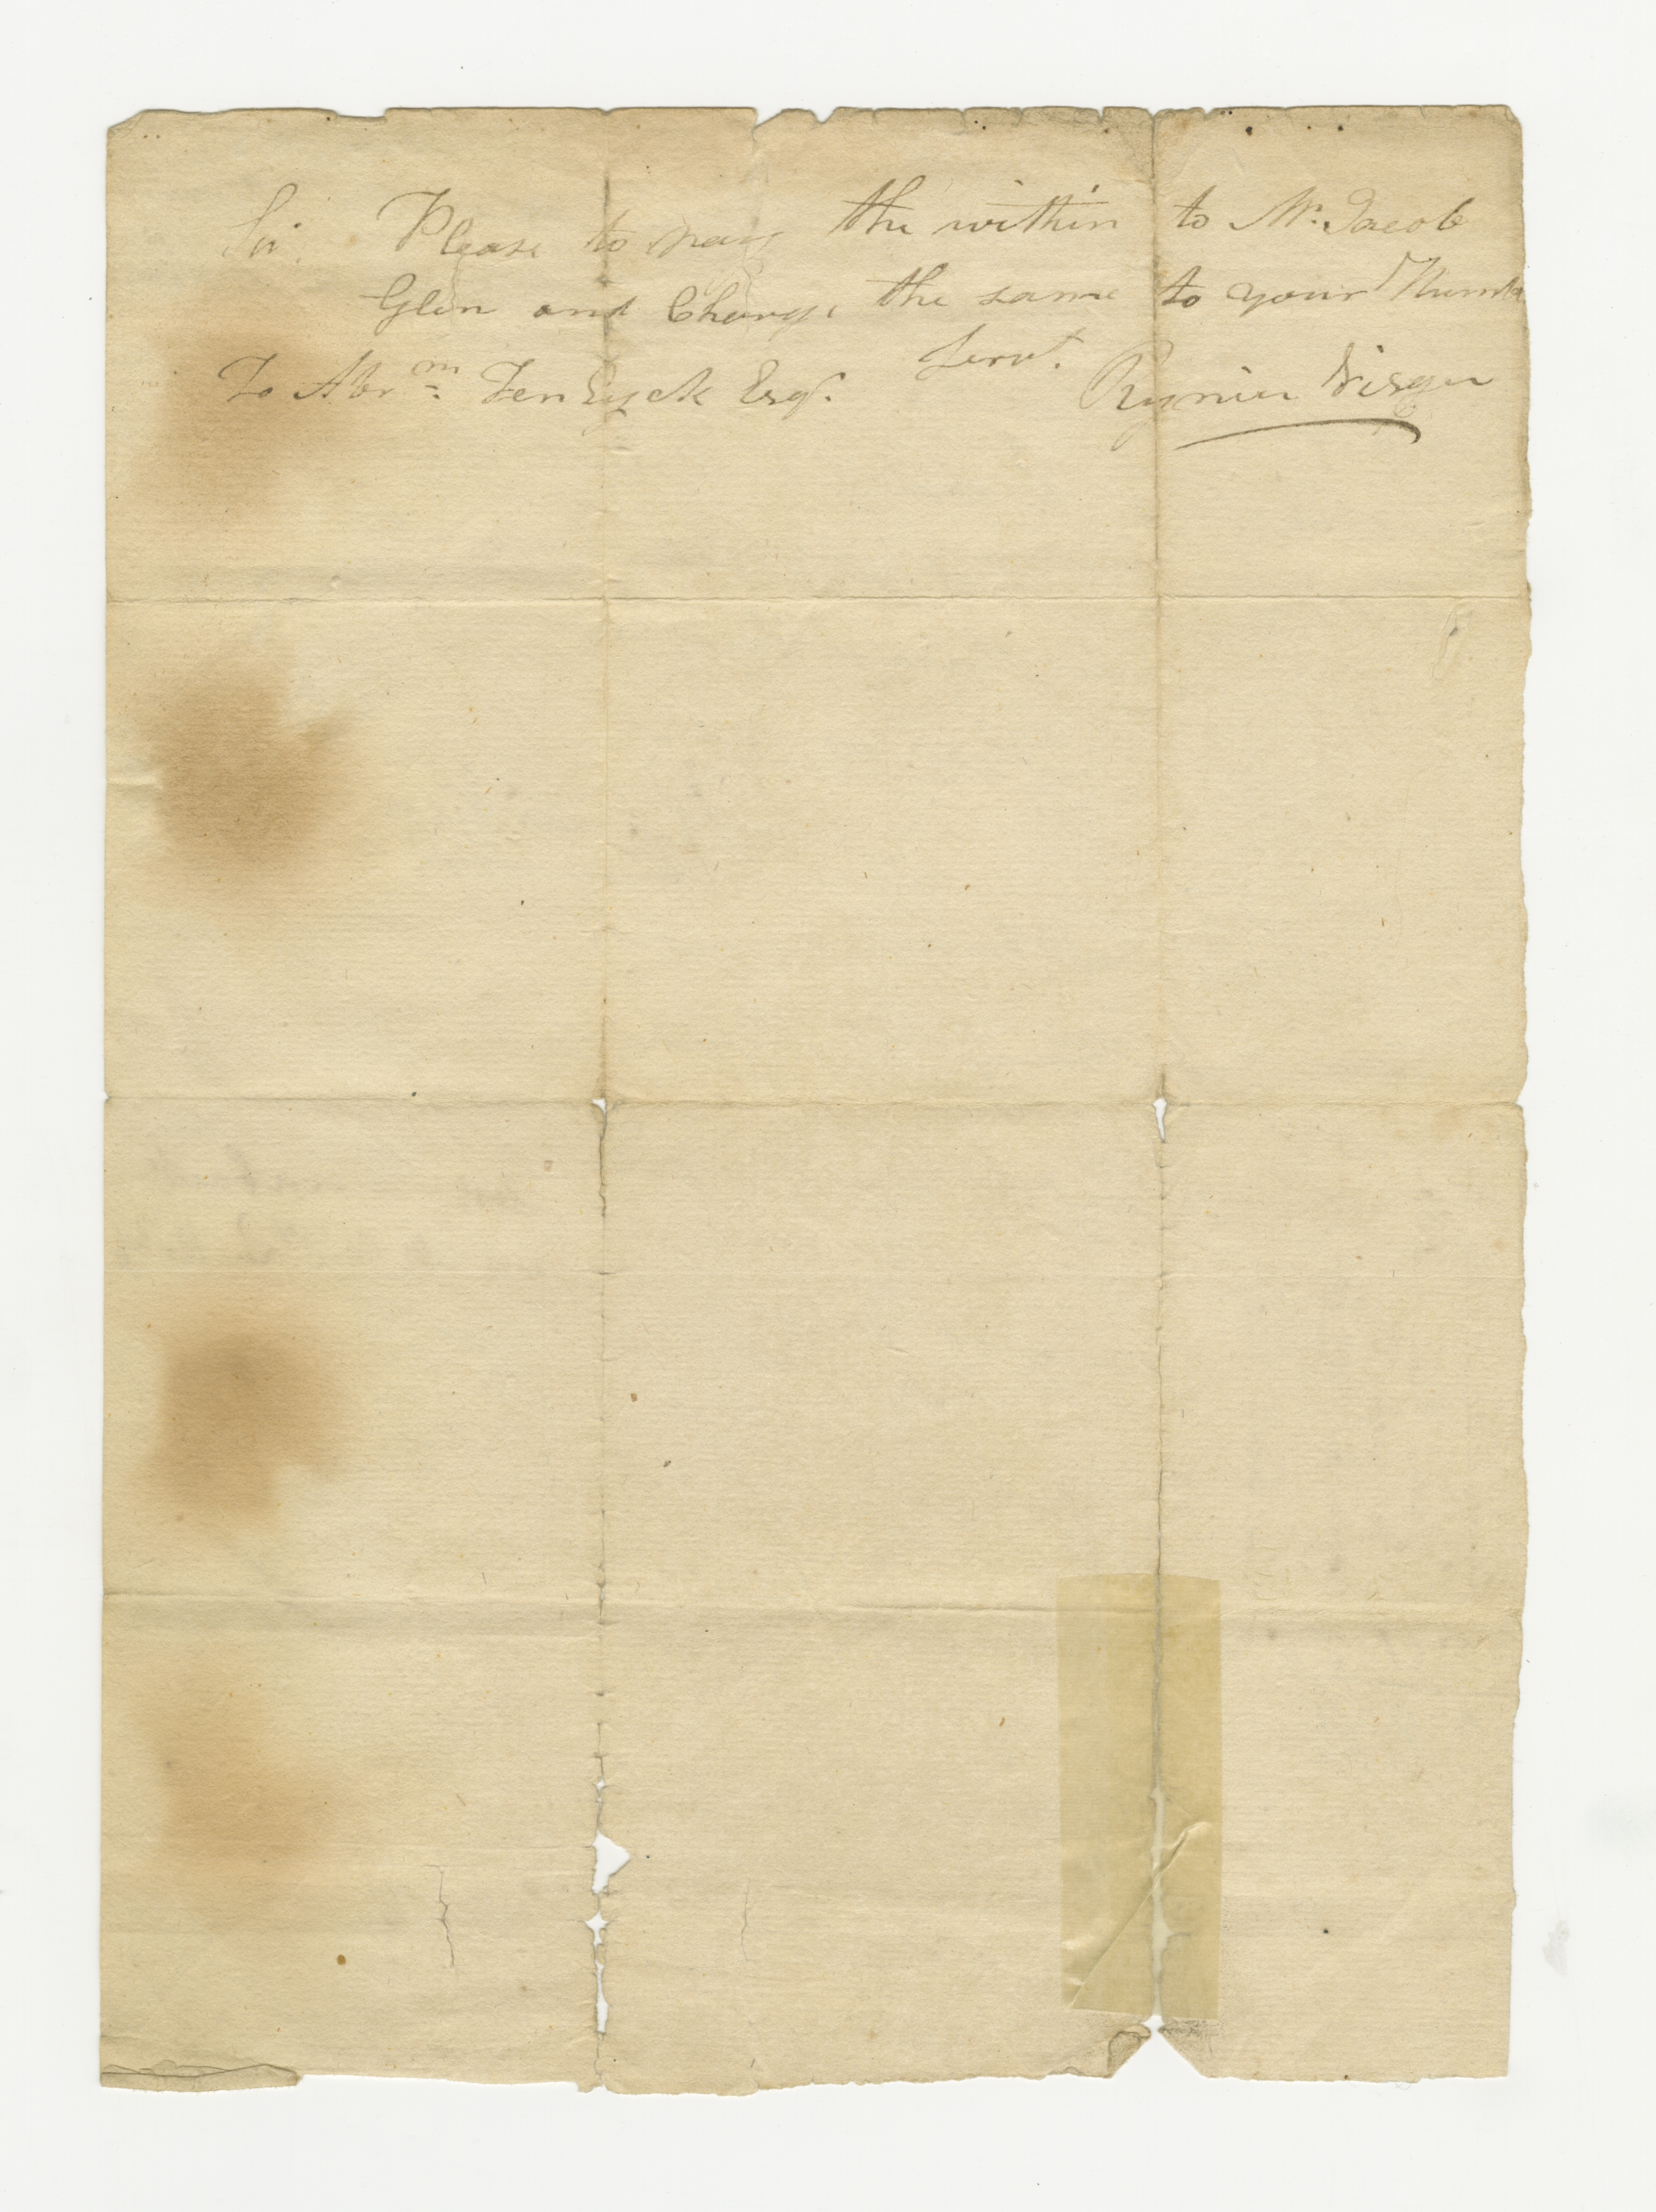 Sir. Please to pay the within to Mr. Jacob
Glen and Charge the same to your Humble
Servt.
To Abrm. Ten Eyck Esqr. Rynier Visger